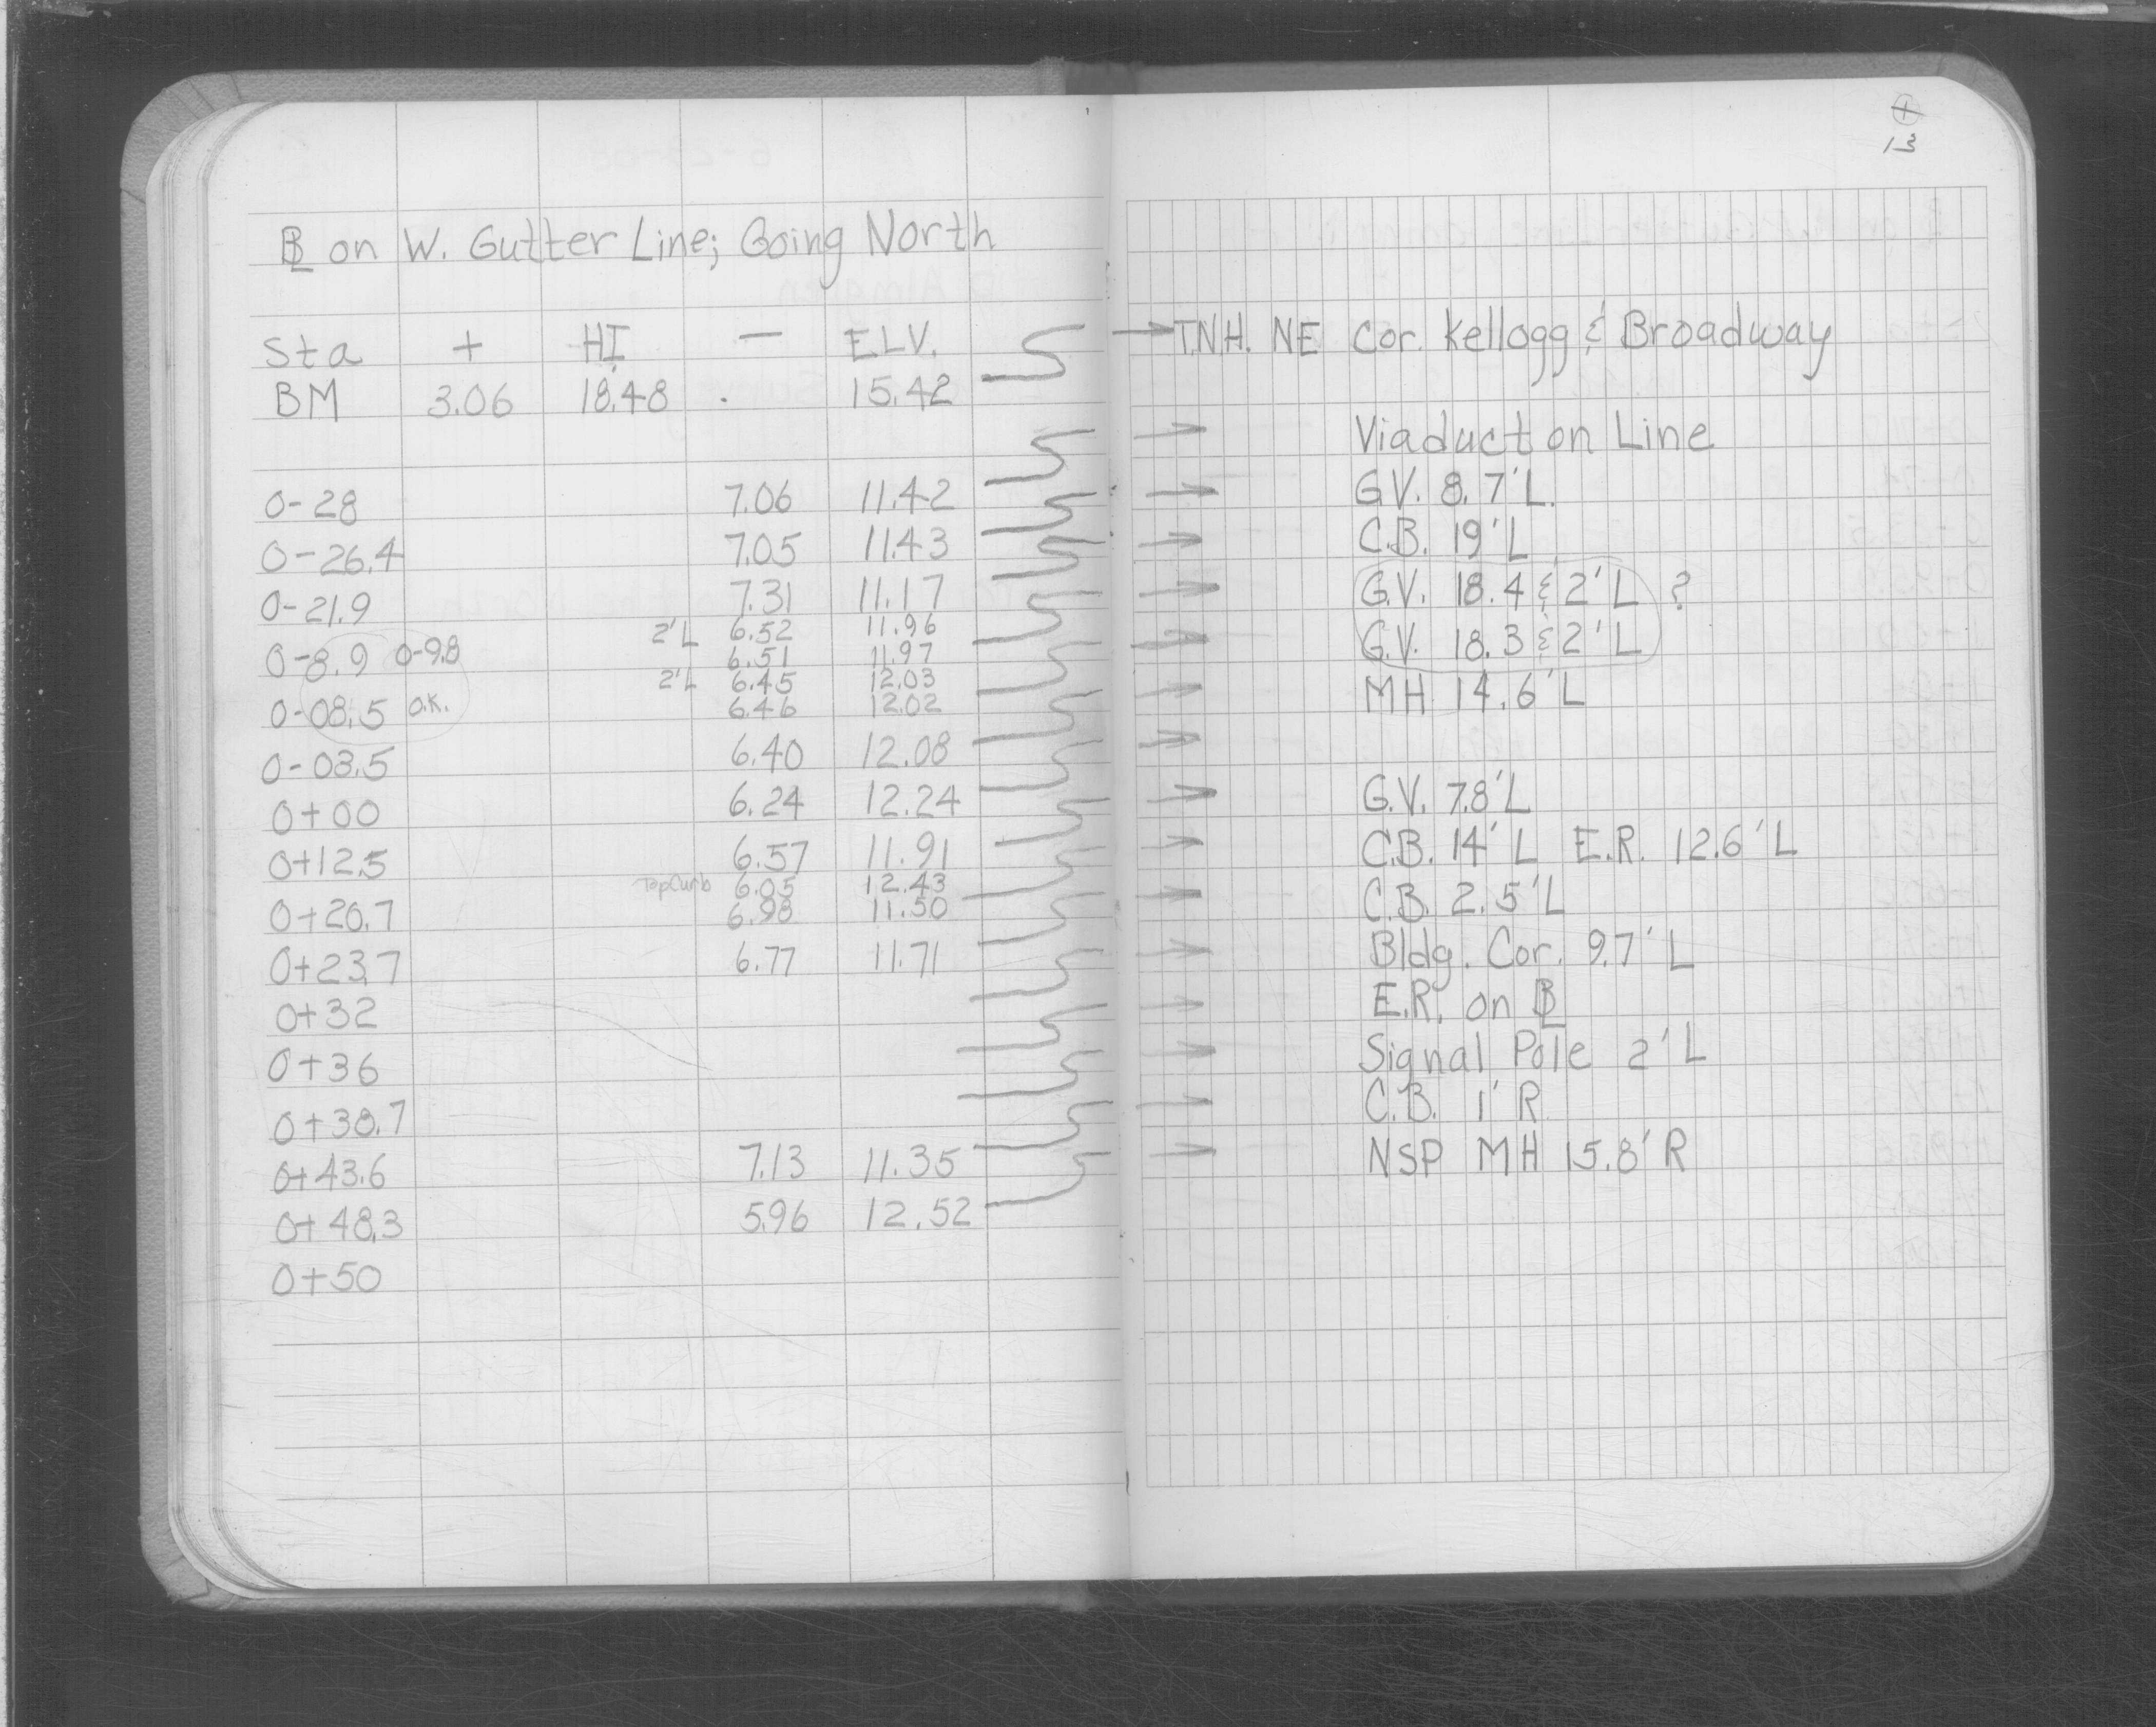 BL on W. Gutter Line; Going North
Sta + HI — ELV.
BM 3.06 18.48 15.42
0-28 7.06 11.42
0-26.4 7.05 11.43
0-21.9 7.31 11.17
2'L 6.52 11.96
0-8.9 0-9.8 6.51 11.97
2'L 6.45 12.03
0-08.5 O.K. 6.46 12.02
0-03.5 6.40 12.08
0+00 6.24 12.24
0+12.5 6.57 11.91
Top Curb 6.05 12.43
0+20.7 6.98 11.50
0+23.7 6.77 11.71
0+32
0+36
0+38.7
0+43.6 7.13 11.35
0+48.3 5.96 12.52
0+50
T.N.H. NE Cor. Kellogg & Broadway
Viaduct on Line
G.V. 8.7'L.
C.B. 19'L
G.V. 18.4 & 2'L ?
G.V. 18.3 & 2'L
MH 14.6'L
G.V. 7.8'L
C.B. 14'L E.R. 12.6'L
C.B. 2.5'L
Bldg. Cor. 9.7'L
E.R. on BL
Signal Pole 2'L
C.B. 1'R
NSP MH 15.8'R